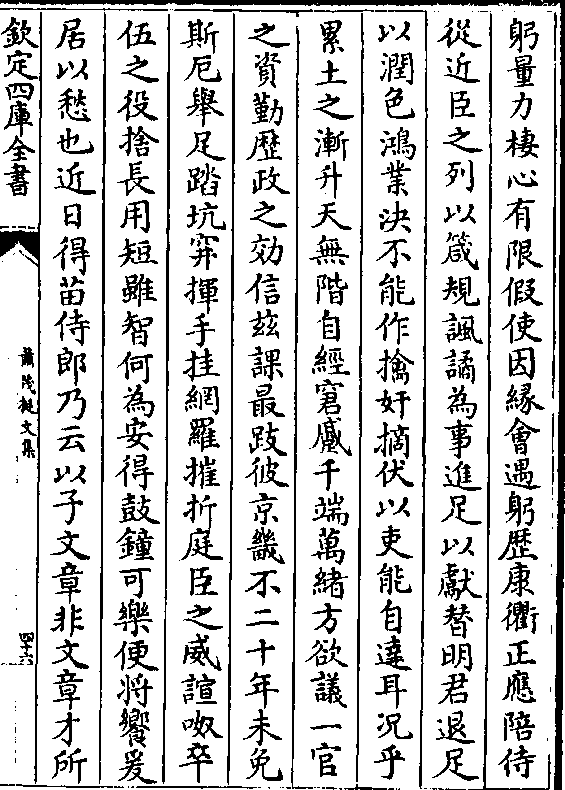 躬量力棲心有限假使因緣會遇躬歴康衢正應陪侍
從近臣之列以箴規諷譎為事進足以獻替明君退足
以潤色鴻業決不能作擒奸摘伏以吏能自達耳况乎
累土之漸升天無階自經窘蹙千端萬緒方欲議一官
之資勤歴政之効信兹課最跂彼京畿不二十年未免
斯厄舉足踏坑穽揮手挂網羅摧折庭臣之威諠呶卒
伍之役捨長用短雖智何為安得鼓鐘可樂便將饗爰
居以愁也近日得苗侍郎乃云以子文章非文章才所
欽定四庫全書
蕭茂挺文集